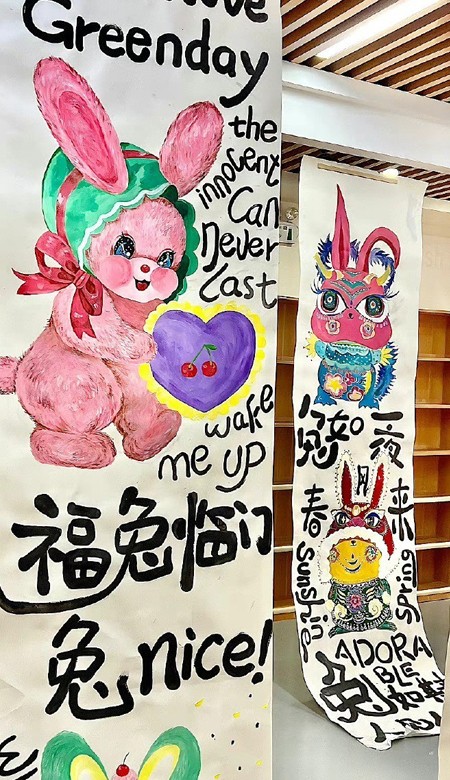 Greenday
the
innocent
Can
Never
Last
wake
me up
福兔临门
兔nice!
如一
夜
春
来
Sunshine
spring
ADORA
BLE
兔